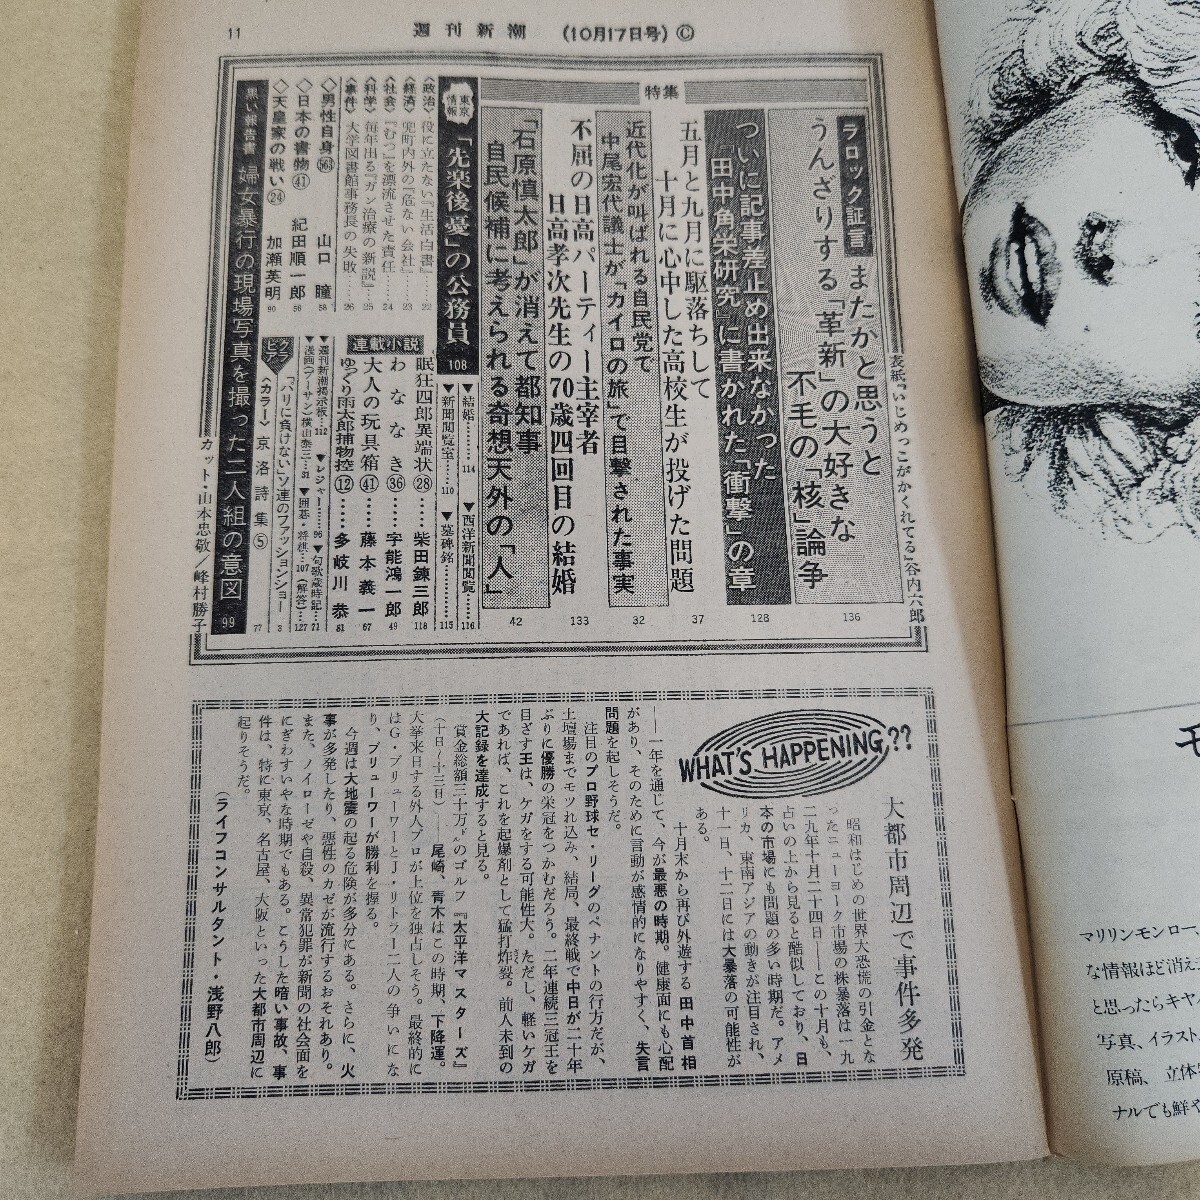 11
週刊新潮 (10月17日号) ©
特集
ラロック証言
またかと思うと
うんざりする「革新」の大好きな
不毛の「核」論争
136
ついに記事差止め出来なかった
「田中角栄研究」に書かれた「衝撃」の章
128
五月と九月に駆落ちして
十月に心中した高校生が投げた問題
37
近代化が叫ばれる自民党で
中尾宏代議士が「カイロの旅」で目撃された事実
32
不屈の日高パーティー主宰者
日高孝次先生の70歳四回目の結婚
133
「石原慎太郎」が消えて都知事
自民候補に考えられる奇想天外の「人」
42
東京情報
「先楽後憂」の公務員
108
〈政治〉役に立たない『生活白書』……22
〈経済〉兜町内外の『危ない会社』……23
〈社会〉『むつ』を漂流させた責任……24
〈科学〉毎年出る『ガン治療の新説』……25
〈事件〉大学図書館事務長の失敗……26
◇男性自身(563) 山口 瞳 58
◇日本の書物(41) 紀田順一郎 56
◇天皇家の戦い(24) 加瀬英明 90
黒い報告書
婦女暴行の現場写真を撮った二人組の意図
99
▼結婚……114
▼西洋新聞閲覧……116
▼新聞閲覧室……110
▼墓碑銘……115
連載小説
眠狂四郎異端状(28)……柴田錬三郎 118
わななき(36)……宇能鴻一郎 49
大人の玩具箱(41)……藤本義一 67
ゆっくり雨太郎捕物控(12)……多岐川 恭 81
▼週刊新潮掲示板……112
▼レジャー……96
▼句歌歳時記……71
▼漫画(アーサン)横山泰三…31
▼囲碁・将棋…107(解答)…127
グラビア
「パリに負けない」ソ連のファッションショー 3
〈カラー〉京洛詩集⑤ 77
表紙「いじめっこがかくれてる」谷内六郎
カット・山本忠敬／峰村勝子
WHAT'S HAPPENING??
大都市周辺で事件多発
昭和はじめの世界大恐慌の引金とな
ったニューヨーク市場の株暴落は一九
二九年十月二十四日──この十月も、
占いの上から見ると酷似しており、日
本の市場にも問題の多い時期だ。アメ
リカ、東南アジアの動きが注目され、
十一日、十二日には大暴落の可能性が
ある。
十月末から再び外遊する田中首相
──一年を通じて、今が最悪の時期。健康面にも心配
があり、そのために言動が感情的になりやすく、失言
問題を起しそうだ。
注目のプロ野球セ・リーグのペナントの行方だが、
土壇場までモツれ込み、結局、最終戦で中日が二十年
ぶりに優勝の栄冠をつかむだろう。二年連続三冠王を
目ざす王は、ケガをする可能性大。ただし、軽いケガ
であれば、これを起爆剤として猛打炸裂。前人未到の
大記録を達成すると見る。
賞金総額三十万ドルのゴルフ『太平洋マスターズ』
(十日～十三日)──尾崎、青木はこの時期、下降運。
大挙来日する外人プロが上位を独占しそう。最終的に
はG・ブリューワーとJ・リトラー二人の争いにな
り、ブリューワーが勝利を握る。
今週は大地震の起る危険が多分にある。さらに、火
事が多発したり、悪性のカゼが流行するおそれあり。
また、ノイローゼや自殺、異常犯罪が新聞の社会面を
にぎわすいやな時期でもある。こうした暗い事故、事
件は、特に東京、名古屋、大阪といった大都市周辺に
起りそうだ。
(ライフコンサルタント・浅野八郎)
モ
マリリンモンロー、
な情報ほど消え
と思ったらキヤ
写真、イラスト、
原稿、立体
ナルでも鮮や